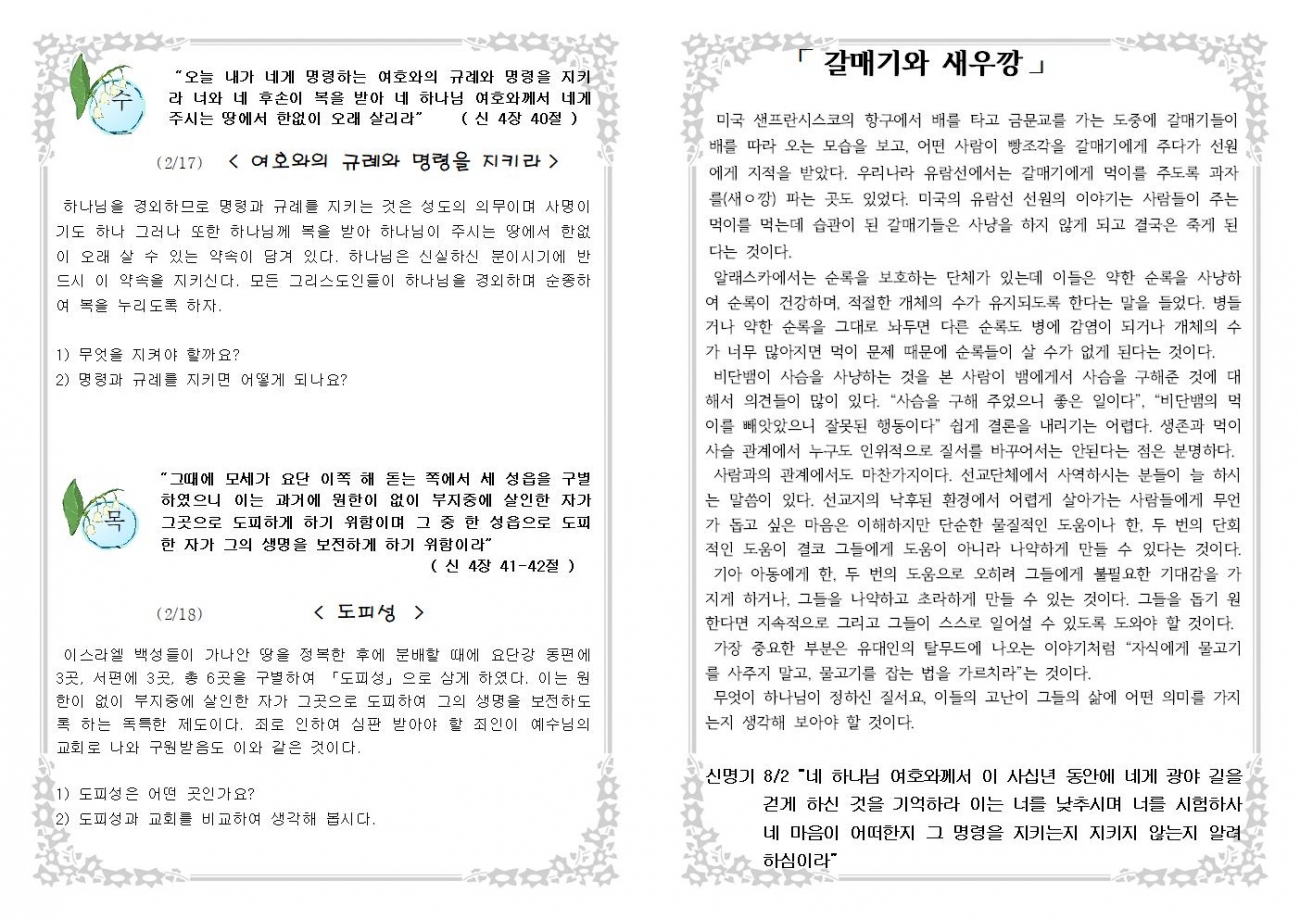 수
“오늘 내가 네게 명령하는 여호와의 규례와 명령을 지키
라 너와 네 후손이 복을 받아 네 하나님 여호와께서 네게
주시는 땅에서 한없이 오래 살리라” ( 신 4장 40절 )
(2/17) < 여호와의 규례와 명령을 지키라 >
하나님을 경외하므로 명령과 규례를 지키는 것은 성도의 의무이며 사명이
기도 하나 그러나 또한 하나님께 복을 받아 하나님이 주시는 땅에서 한없
이 오래 살 수 있는 약속이 담겨 있다. 하나님은 신실하신 분이시기에 반
드시 이 약속을 지키신다. 모든 그리스도인들이 하나님을 경외하며 순종하
여 복을 누리도록 하자.
1) 무엇을 지켜야 할까요?
2) 명령과 규례를 지키면 어떻게 되나요?
목
“그때에 모세가 요단 이쪽 해 돋는 쪽에서 세 성읍을 구별
하였으니 이는 과거에 원한이 없이 부지중에 살인한 자가
그곳으로 도피하게 하기 위함이며 그 중 한 성읍으로 도피
한 자가 그의 생명을 보전하게 하기 위함이라”
( 신 4장 41-42절 )
(2/18) < 도피성 >
이스라엘 백성들이 가나안 땅을 정복한 후에 분배할 때에 요단강 동편에
3곳, 서편에 3곳, 총 6곳을 구별하여 「도피성」으로 삼게 하였다. 이는 원
한이 없이 부지중에 살인한 자가 그곳으로 도피하여 그의 생명을 보전하도
록 하는 독특한 제도이다. 죄로 인하여 심판 받아야 할 죄인이 예수님의
교회로 나와 구원받음도 이와 같은 것이다.
1) 도피성은 어떤 곳인가요?
2) 도피성과 교회를 비교하여 생각해 봅시다.
「 갈매기와 새우깡 」
미국 샌프란시스코의 항구에서 배를 타고 금문교를 가는 도중에 갈매기들이
배를 따라 오는 모습을 보고, 어떤 사람이 빵조각을 갈매기에게 주다가 선원
에게 지적을 받았다. 우리나라 유람선에서는 갈매기에게 먹이를 주도록 과자
를(새ㅇ깡) 파는 곳도 있었다. 미국의 유람선 선원의 이야기는 사람들이 주는
먹이를 먹는데 습관이 된 갈매기들은 사냥을 하지 않게 되고 결국은 죽게 된
다는 것이다.
알래스카에서는 순록을 보호하는 단체가 있는데 이들은 약한 순록을 사냥하
여 순록이 건강하며, 적절한 개체의 수가 유지되도록 한다는 말을 들었다. 병들
거나 약한 순록을 그대로 놔두면 다른 순록도 병에 감염이 되거나 개체의 수
가 너무 많아지면 먹이 문제 때문에 순록들이 살 수가 없게 된다는 것이다.
비단뱀이 사슴을 사냥하는 것을 본 사람이 뱀에게서 사슴을 구해준 것에 대
해서 의견들이 많이 있다. “사슴을 구해 주었으니 좋은 일이다”, “비단뱀의 먹
이를 빼앗았으니 잘못된 행동이다” 쉽게 결론을 내리기는 어렵다. 생존과 먹이
사슬 관계에서 누구도 인위적으로 질서를 바꾸어서는 안된다는 점은 분명하다.
사람과의 관계에서도 마찬가지이다. 선교단체에서 사역하시는 분들이 늘 하시
는 말씀이 있다. 선교지의 낙후된 환경에서 어렵게 살아가는 사람들에게 무언
가 돕고 싶은 마음은 이해하지만 단순한 물질적인 도움이나 한, 두 번의 단회
적인 도움이 결코 그들에게 도움이 아니라 나약하게 만들 수 있다는 것이다.
기아 아동에게 한, 두 번의 도움으로 오히려 그들에게 불필요한 기대감을 가
지게 하거나, 그들을 나약하고 초라하게 만들 수 있는 것이다. 그들을 돕기 원
한다면 지속적으로 그리고 그들이 스스로 일어설 수 있도록 도와야 할 것이다.
가장 중요한 부분은 유대인의 탈무드에 나오는 이야기처럼 “자식에게 물고기
를 사주지 말고, 물고기를 잡는 법을 가르치라”는 것이다.
무엇이 하나님이 정하신 질서요, 이들의 고난이 그들의 삶에 어떤 의미를 가지
는지 생각해 보아야 할 것이다.
신명기 8/2 "네 하나님 여호와께서 이 사십년 동안에 네게 광야 길을
걷게 하신 것을 기억하라 이는 너를 낮추시며 너를 시험하사
네 마음이 어떠한지 그 명령을 지키는지 지키지 않는지 알려
하심이라”